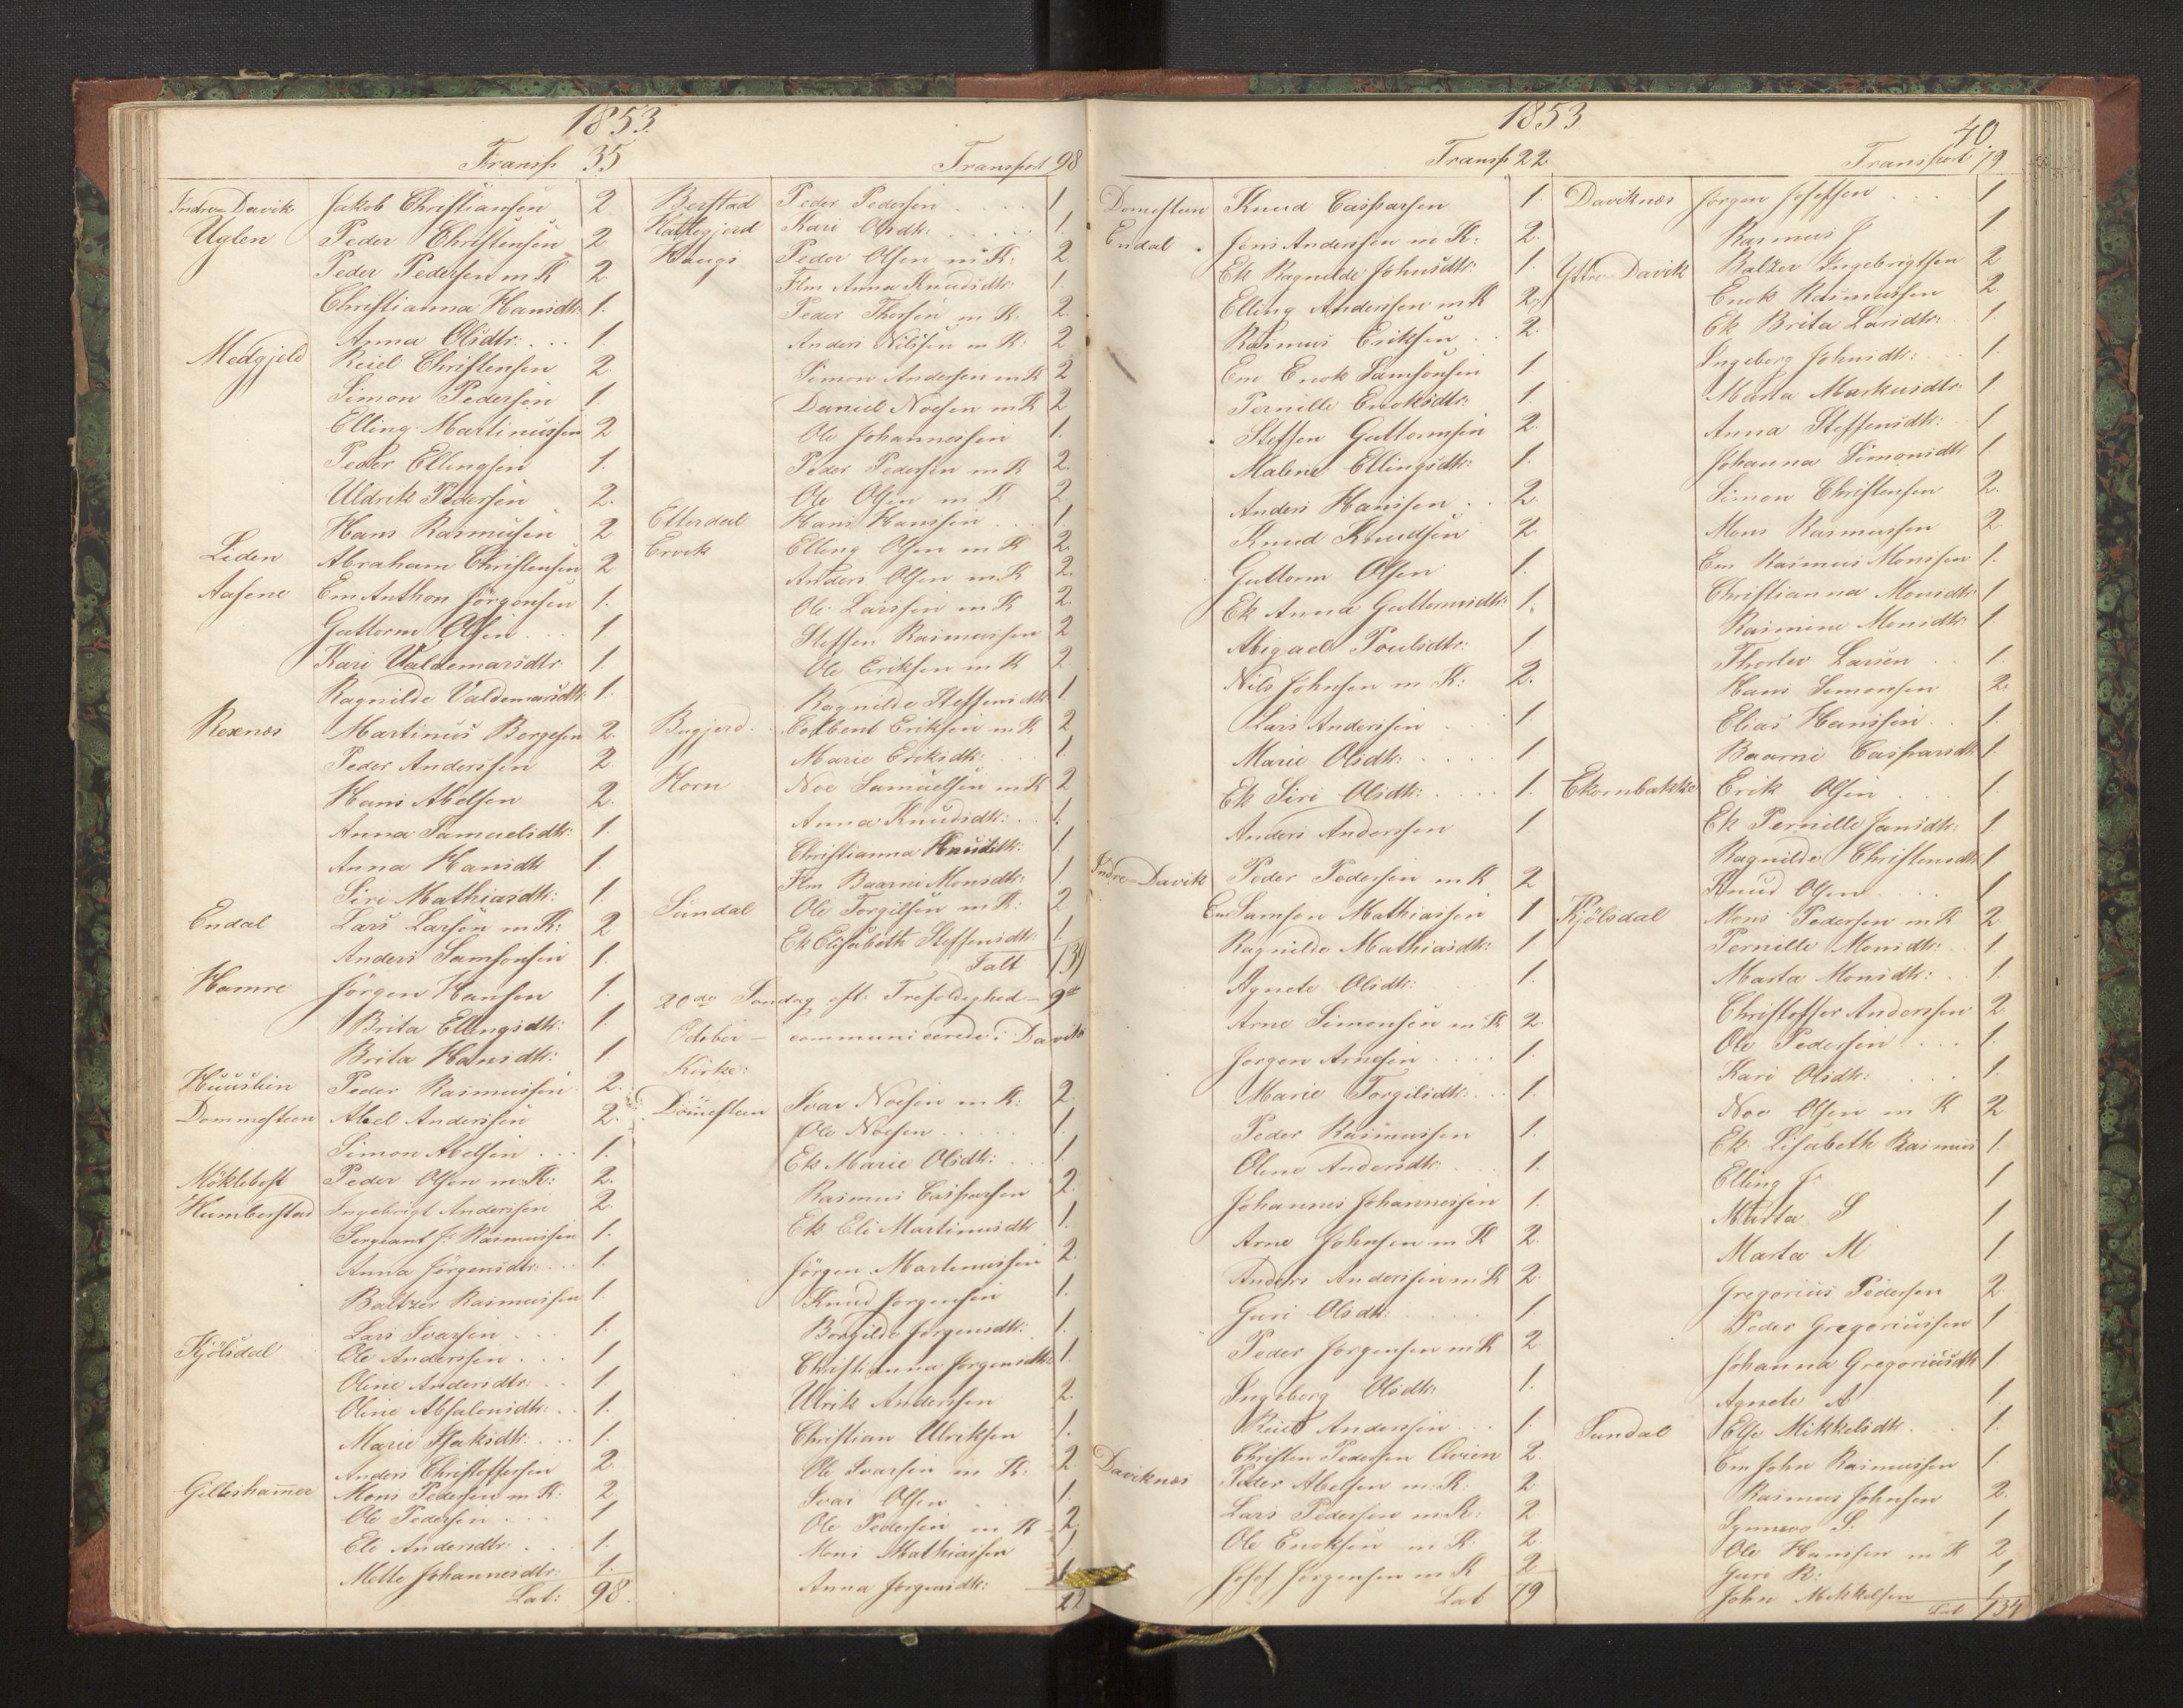 1853.
Transp 35
Indre-Davik Jakob Christiansen 2
Uglen Peder Christensen 2
Peder Pedersen m K 2
Christianna Hansdtr: 1.
Anna Olsdtr: . . . 1.
Medgjeld Reiel Christensen 2
Simon Pedersen 1.
Elling Martinussen 2
Peder Ellingsen 1.
Uldrik Pedersen 2.
Hans Rasmusen 2
Liden Abraham Christensen 2
Aasene Em Anthon Jörgensen 1.
Guttorm Olsen . . . 1.
Kari Valdemarsdtr 1.
Ragnilde Valdemarsdtr: 1.
Rexnes Martinus Börgesen 2.
Peder Anderssen 2.
Hans Abelsen 2.
Anna Samuelsdtr: 1.
Anna Hansdtr 1.
Siri Mathiasdtr: 1.
Endal Lars Larsen m K: 2
Anders Samsonsen 1.
Hamre Jörgen Hansen 1.
Brita Ellingsdtr: 1.
Brita Hansdtr: 1
Huuslien Peder Rasmussen 2.
Dommesteen Abel Anderssen 2.
Simon Abelsen . . . 1.
Möklebost Peder Olsen m K: 2.
Humberstad Ingebrigt Anderssen 2.
Sergeant J. Rasmussen 1.
Anna Jörgensdtr: . . . 1.
Baltzer Rasmussen 1.
Lars Ivarsen . . . 1.
Kjölsdal Ole Anderssen . . . 1
Oline Andersdtr: . . 1
Oline Absalonsdtr: . . 1.
Marie Isaksdtr: . . . 1.
Anders Christoffersen 2.
Gilleshammer Mons Pedersen m K: 2.
Ole Pedersen . . . 1
Eli Andersdtr: . . . 1.
Mette Johannesdtr: 1.
Lat: 98.
Transport 98
Berstad Peder Pedersen . . . . 1.
Kari Olsdtr: . . . . . 1.
Haugs Peder Olsen m K: 2.
Flm Anna Knudsdtr: 1.
Peder Thorsen m K. 2.
Anders Nilssen m K: 2
Simon Andersen m K 2
Daniel Noesen m K 2
Ole Johannessen 1.
Peder Pedersen m K 2.
Ole Olsen m K 2
Hans Hanssen . . . 1.
Ervik Elling Olsen m K 2.
Anders Olsen m K 2.
Ole Larssen m K 2.
Steffen Rasmussen 2
Ole Eriksen m K 2
Ragnilde Steffensdtr 1
Eriksen m K 2
Marie Eriksdtr: 1
Horn Noe Samuelsen m K 2
Anna Knudsdtr: . . 1.
Christianna Knudsdtr: 1.
Flm Baarni Monsdtr: 1.
Sundal Ole Torgilsen m K: 2
Ek Elisabeth Steffensdtr: 1.
Talt 139
20de Söndag eft: Trefoldighed – 9de
October – communicerede i Davik
Kirke:
Domesteen Ivar Noesen m K: 2.
Ole Noesen . . . . . 1.
Ek Marie Olsdtr: . . . 1.
Rasmus Casparsen 2.
Ek Eli Martinusdtr 1.
Jörgen Martinussen 2.
Knud Jörgensen 1.
Borgilde Jörgensdtr: 1.
Christianna Jörgensdtr: 1.
Ulrik Anderssen 2.
Christian Ulriksen 1.
Ole Ivarsen m K: 2
Ivar Olsen 1.
Ole Pedersen m K 2.
Mons Mathiassen 1
Anna Jörgensdtr: 1.
22
1853
40
Transp 22
Domesteen Knud Casparsen 1.
Endal Jens Anderssen m K: 2.
Ek Ragnilde Johnsdtr: 1.
Elling Anderssen m K 2.
Rasmus Eriksen . . 2.
Em Enok Samsonsen 1
Pernille Enoksdtr: 1.
Steffen Guttormsen 2.
Malene Ellingsdtr: 1.
Anders Hanssen . . . 2.
Knud Knudsen 2
Guttorm Olsen 1.
Ek Anna Guttormsdtr: 1.
Abigael Poulsdtr: 1
Nils Johnsen m K: 2.
Lars Anderssen 1.
Marie Olsdtr: . . . . 1
Ek Siri Olsdtr: . . . . 1.
Anders Anderssen 1
Indre-Davik Peder Pedersen m K 2
Em Samson Mathiassen 1
Ragnilde Mathiasdtr: 1
Agnete Olsdtr: 1.
Arne Simonsen m K 2.
Jörgen Arnesen . . . . 1.
Marie Torgilsdtr: . . . 1.
Peder Rasmussen 1.
Oline Andersdtr: . 1.
Johannes Johannessen 1.
Arne Johnsen m K 2.
Anders Anderssen m K 2.
Guri Olsdtr: . . . . . 1
Peder Jörgensen m K 2.
Ingeborg Olsdtr: 1.
Reiel Anderssen . . . 1.
Christen Pedersen 2.
Daviknes Peder Abelsen m K: 2
Lars Pedersen m K: 2
Ole Enoksen m K: 2.
Josef Jörgensen m K 2
Lat 79
Transport 79
Daviknes Jörgen Josefsen . . . . 1
Rasmus J 1
Ytre-Davik Baltzer Ingebrigtsen 2
Enok Rasmussen 2.
Ek Brita Larsdtr: 1.
Ingeborg Johnsdtr: . . . 1.
Marta Markusdtr: 1
Anna Steffensdtr: 1
Johanna Simonsdtr 1.
Simon Christensen 2.
Mons Rasmussen 2
Em Rasmus Monssen 1.
Christianna Monsdtr: 1
Rasmine Monsdtr 1.
Thorlev Larsen . . 1.
Hans Simonsen 2.
Elias Hanssen . . 1.
Baarni Casparsdtr 1.
Ekornbakke Erik Olsen . . . 1.
Ek Pernille Jansdtr: 1.
Ragnilde Christensdtr 1
Knud Olsen . . . . 1
Kjölsdal Mons Pedersen m K 2
Pernille Monsdtr: . . 1
Marta Monsdtr: . . 1.
Christoffer Anderssen 2
Ole Pedersen . . . 1.
Kari Olsdtr: . . . 1.
Noe Olsen m K 2.
Ek Lisabeth Rasmus 1.
Elling J. 1
Marta S 1
Marta M 1.
Gregorius Pedersen 2
Peder Gregoriussen 1
Johanna Gregoriusdtr 1.
Agnete A 1
Sundal Else Mikkelsdtr . . 1.
Em John Rasmussen 1.
Rasmus Johnsen 2.
Synneve S. 1
Ole Hanssen m K 2
Guri R: 1
John Mikkelsen 1.
Lat 134